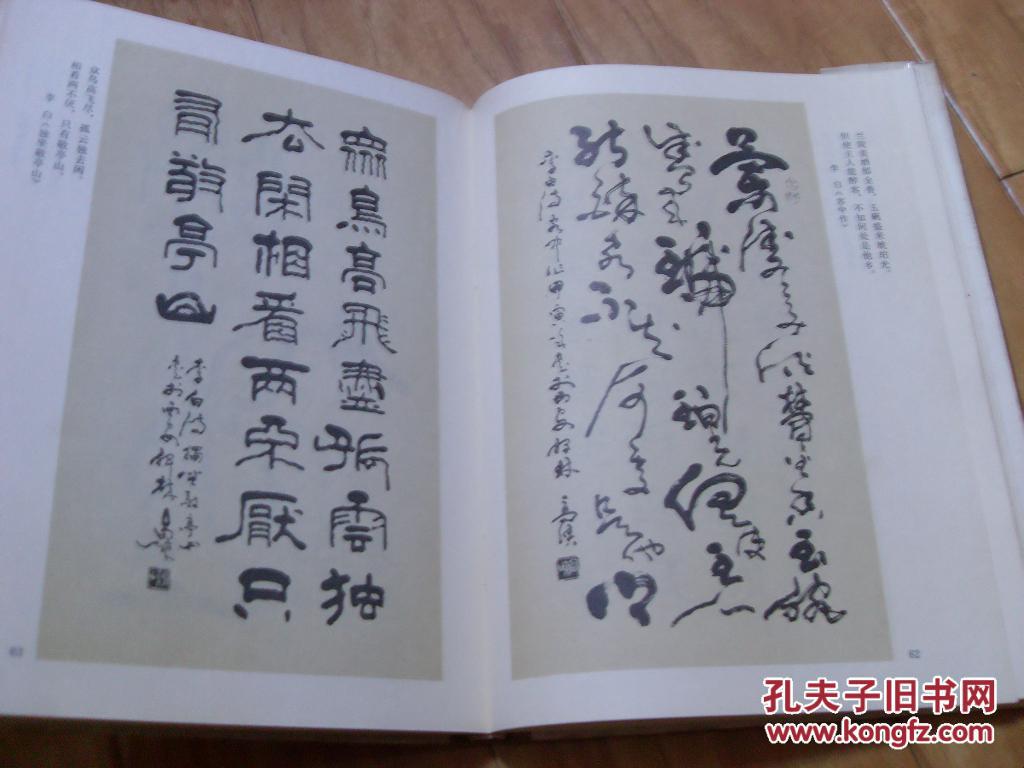 兰陵美酒郁金香，玉碗盛来琥珀光。
但使主人能醉客，不知何处是他乡。
李 白《客中作》
蘭陵美酒鬱金香玉碗
盛来琥珀光但使主人
能醉客不知何处是他鄉
李白诗客中作甲寅
62
衆鳥高飛盡孤雲独
去閑相看两不厭只
有敬亭山
李白诗獨坐敬亭山
众鸟高飞尽，孤云独去闲。
相看两不厌，只有敬亭山。
李 白《独坐敬亭山》
63
孔夫子旧书网
www.kongfz.com